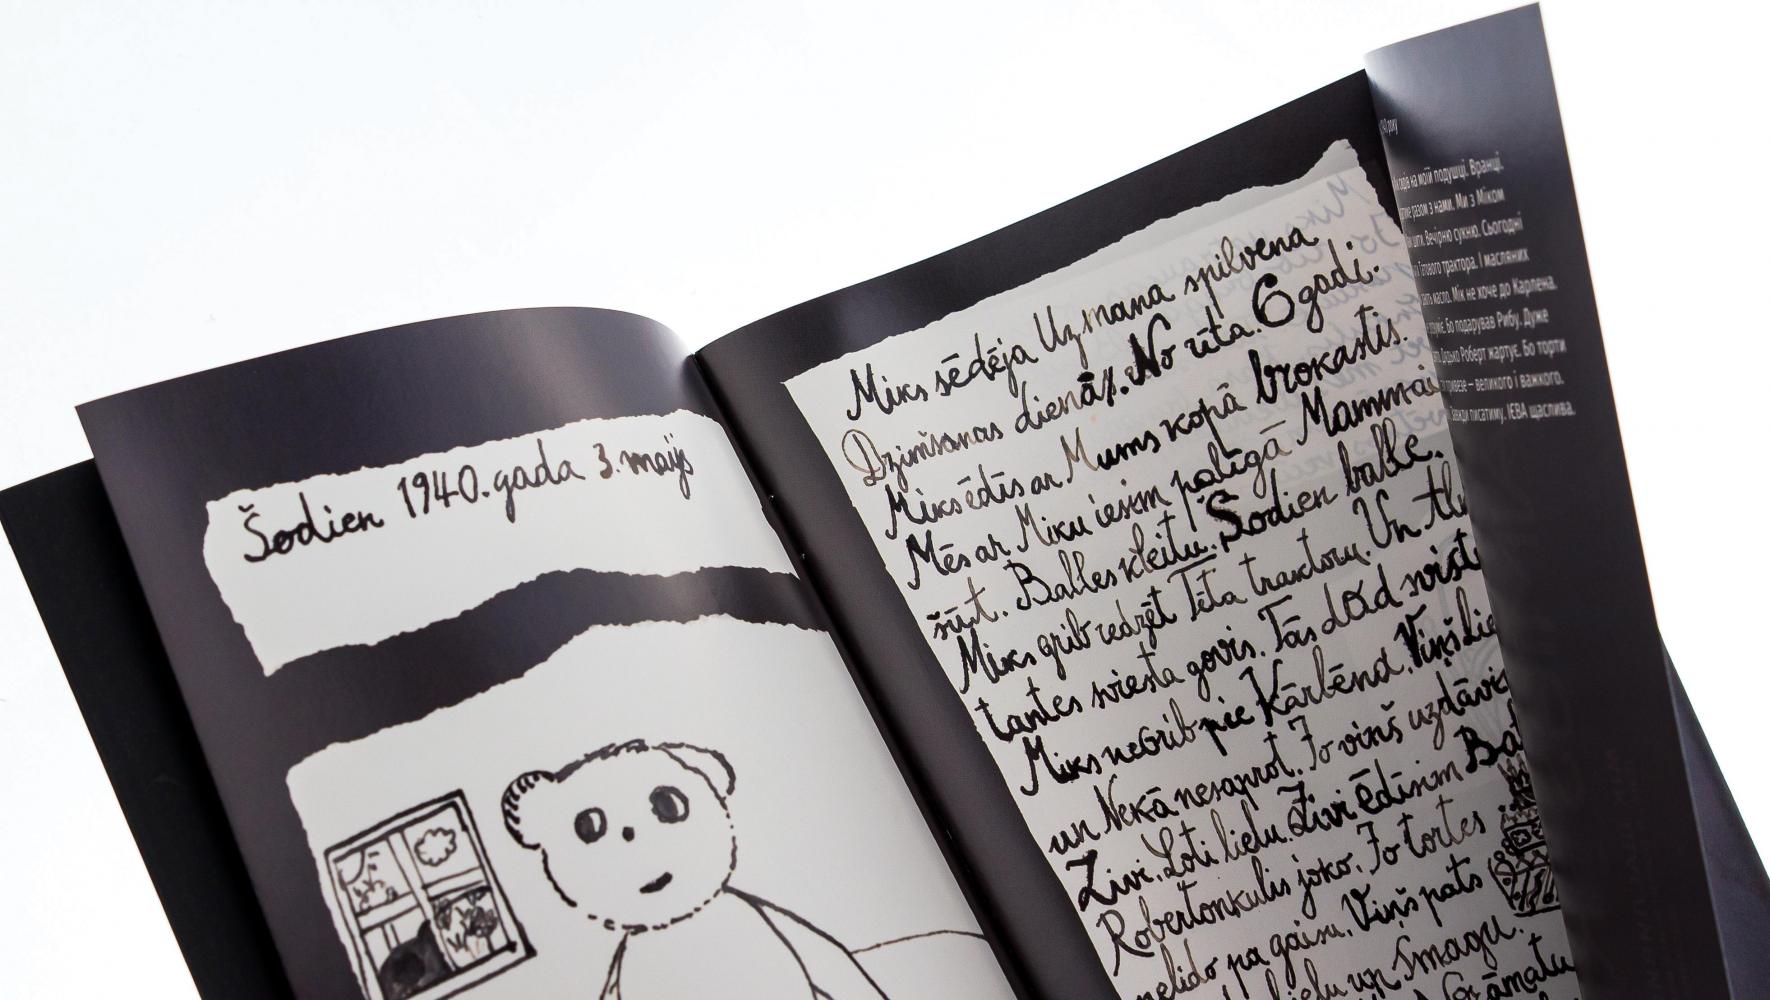 Šodien 1940. gada 3. maijs
Miks sēdēja Uzmana spilvena
Dzimšanas dienā. No rīta. 6 gadi.
Miks ēdīs ar Mums kopā brokastis.
Mēs ar Miku iesim palīgā Mammai
šūt. Balles kleitu. Šodien balle.
Miks grib redzēt Tēta traktoru. Un
tantes sviesta govis. Tās dod
Miks neGrib pie Kārlēna. Viņš
un Nekā nesaprot. Jo viņš
Zivi. Ļoti lielu. Zivi ēdīsim
Robertonkulis joko. Jo tortes
nelido pa gaisu. Viņš pats
lielu un smagu.
Grāmatu
на моїй подушці. Вранці.
разом з нами. Ми з Міком
шити. Вечірню сукню. Сьогодні
Татового трактора. І масляних
масло. Мік не хоче до Карлена.
Бо подарував Рибу. Дуже
Дядько Роберт жартує. Бо торти
– великого і важкого.
писатиму. ІЄВА щаслива.